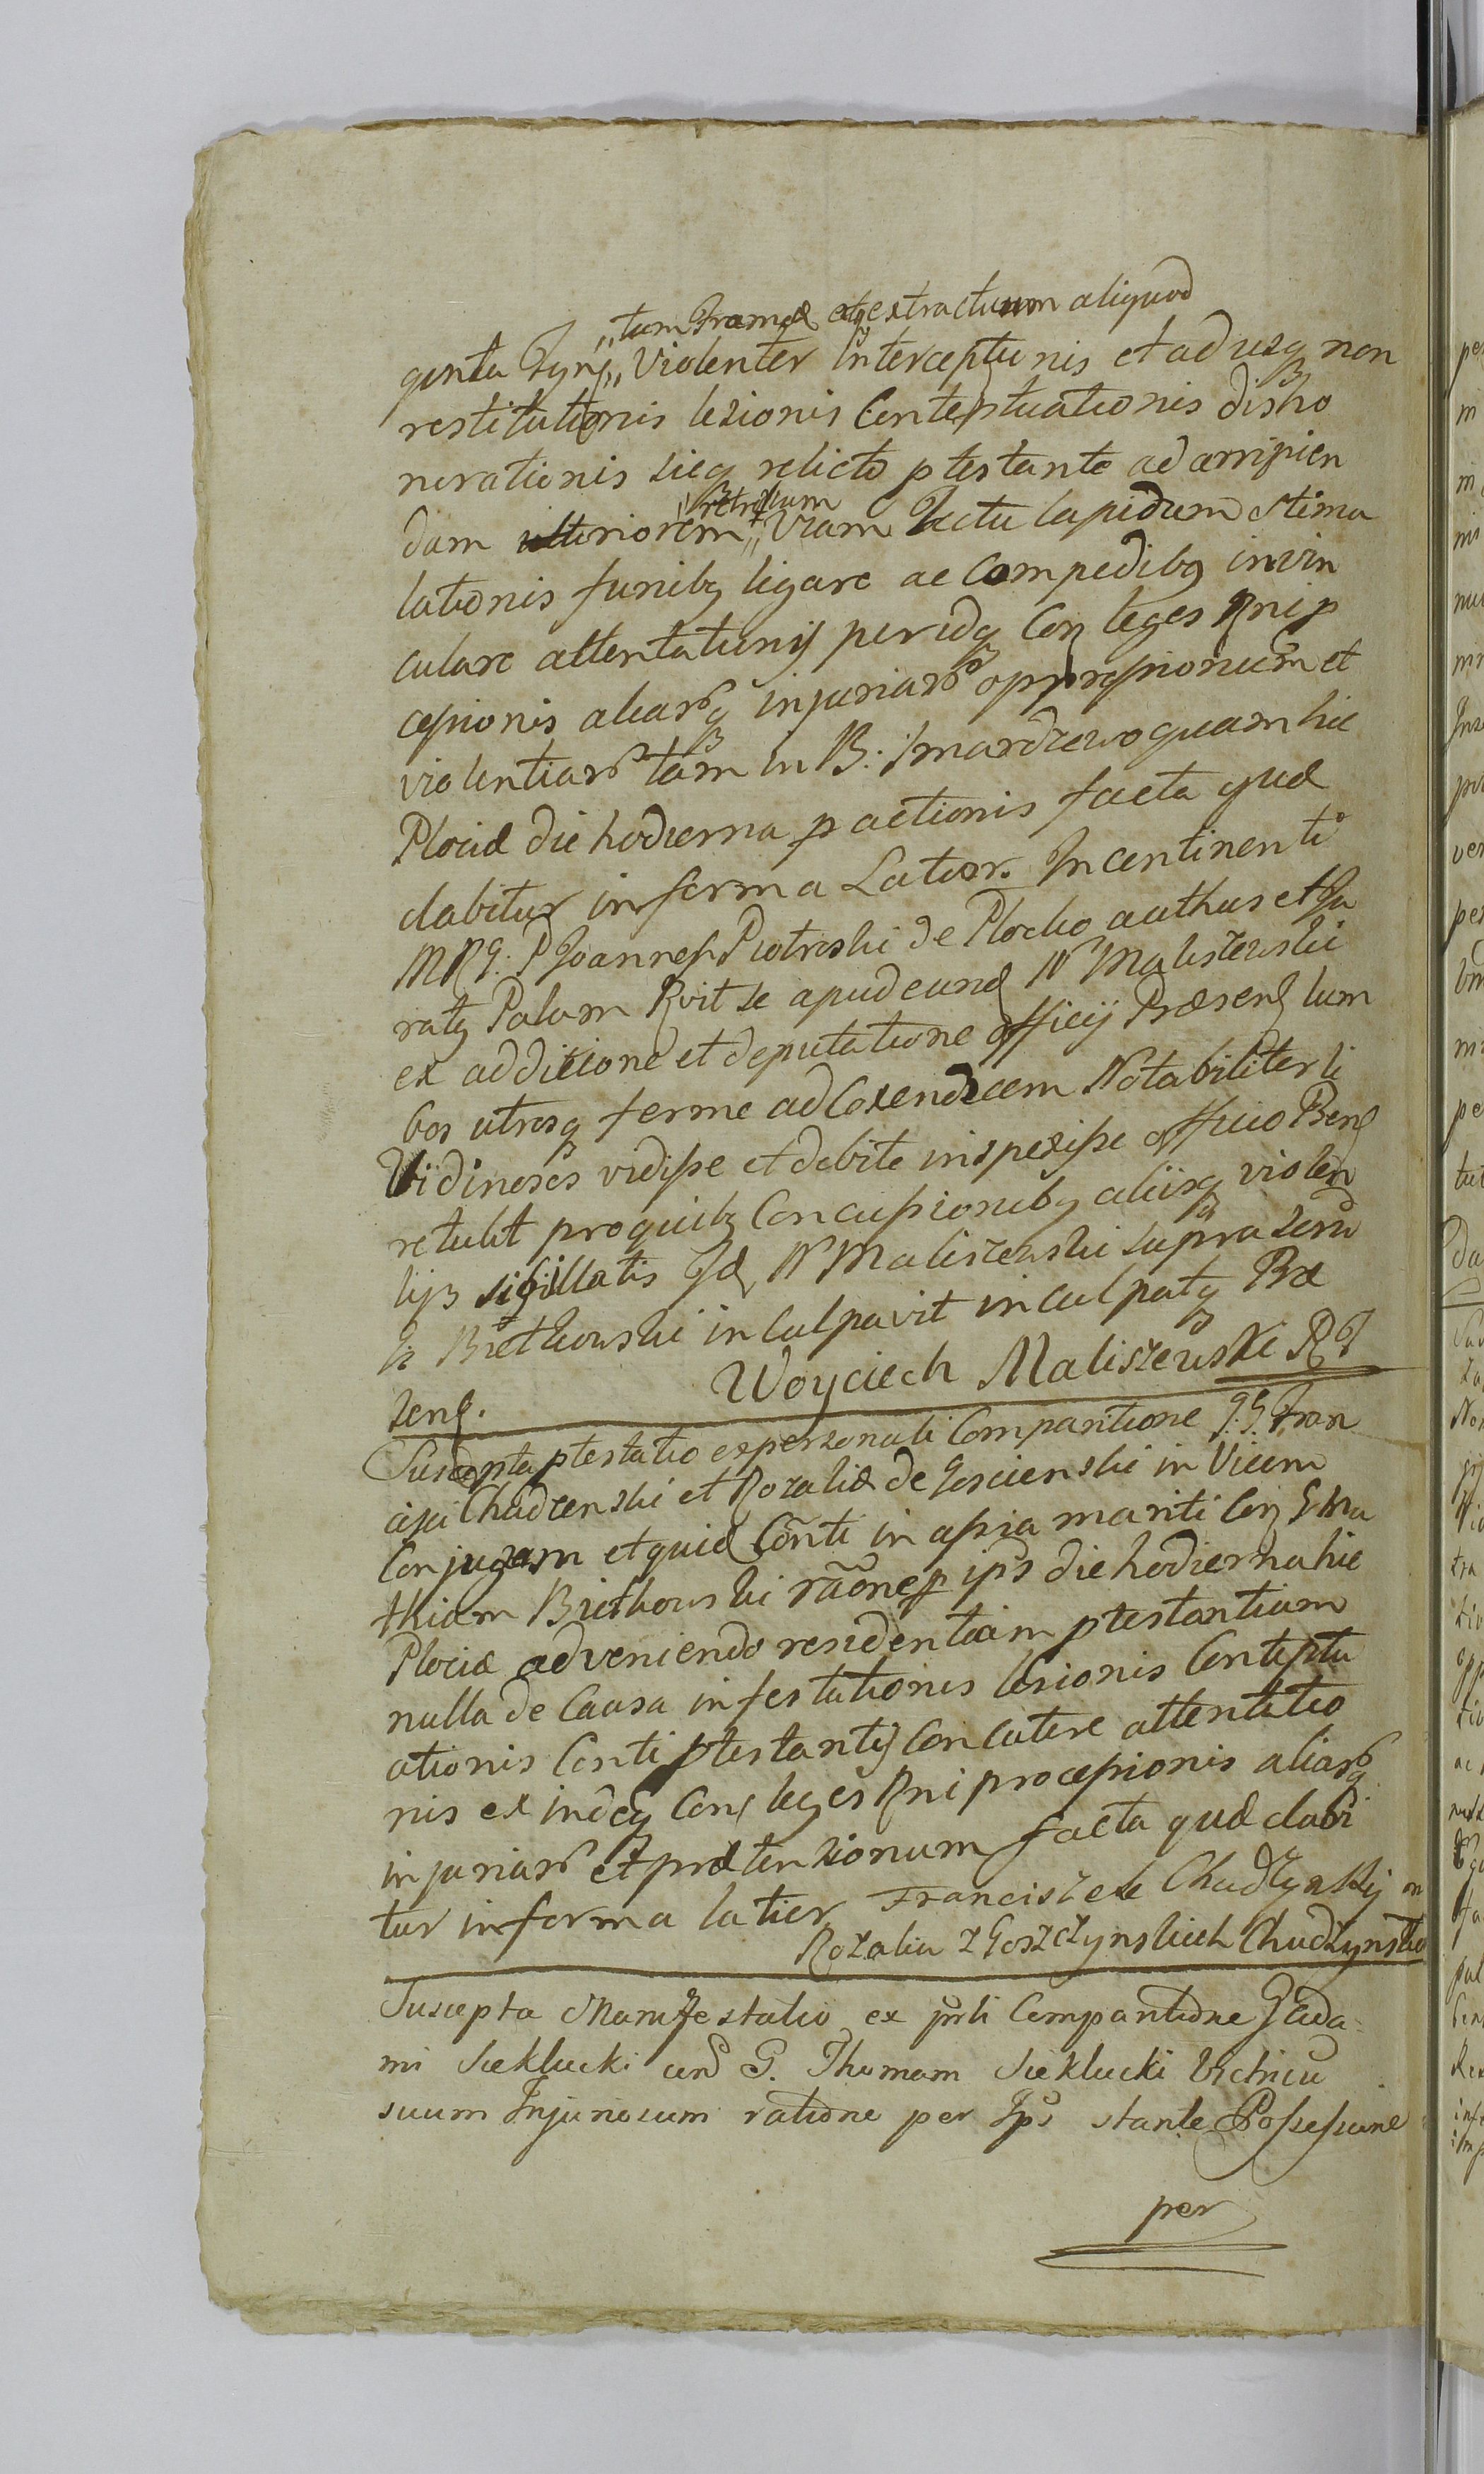 „tum Framea atq extractum aliquod
ginta Tynf„ Violenter Interceptionis et ad usq non
restitutionis lezionis Conteptuationis disho
norationis sicq relicto ptestante ad arripien
dam ulteriorem „retrosum„ Viam Ictu lapidum stimu
lationis funibq ligare ac Compedibq invin
culare attentationis peridq Con leges Rni p
cessionis aliarq injuriar oppressionum et
violentiar tam in B. Smardzewo quam hic
Plociæ die hodierna pactionis facta quæ
dabitur in forma Latior. Incontinenti
MRG. P Joannes Piotroski de Plocko authus et Ju
ratq Palam Rvit se apud eund N Maliszewski
ex additione et deputatione officij Præsend lum
bos utrosq ferme ad Coxendicem Notabiliter li
Vidinosos vidisse et debite inspexisse officio Præsend
retulit pro quibq Concussionibq aliisq violen
tijs sigillatis Id N Maliszewski supra Gend
G Bietkowski inculpavit inculpatq Præ
send.
Woyciech Maliszewski RG
Suscepta ptestatio ex personali Comparitione G.G. Fran
cisci Chudzenski et Rozaliæ de Goscienski in Vicem
Conjugum et quid Conti in assia mariti Con G Ma
thiam Bietkowski raone p ips die hodierna hic
Plociæ adveniendo residentiam ptestantium
nulla de Causa infestationis lesionis Conteptu
ationis Conti ptestantis Concutere attentatio
nis ex indeq Con leges Rni processionis aliarq
injuriar et prætensionum facta quæ dabi
tur in forma latior Franciszek Chudzynskij m
Rozalia z Goszczynskich Chudzynska
Suscepta Manifestatio ex prli Comparitione G Ada
mi Sieklucki cond G. Thomam Sieklucki
suum Injuriosum ratione per Ips stante Possessione
per